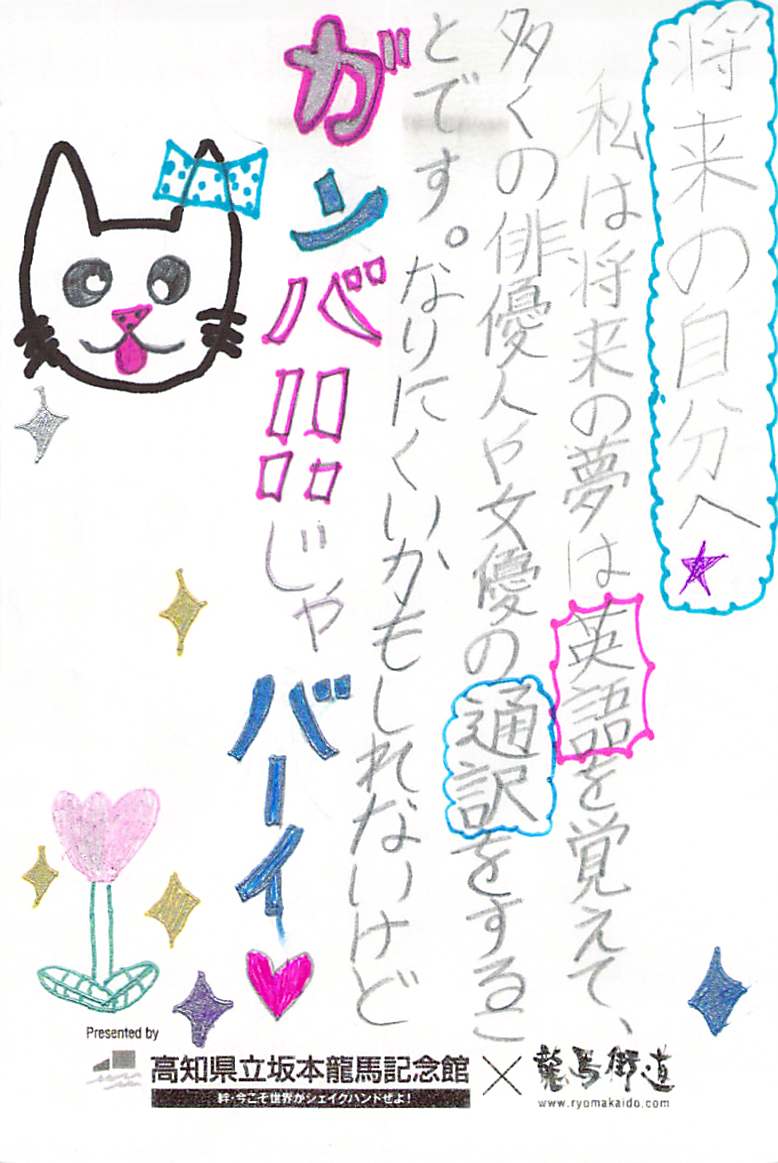 将来の自分へ
私は将来の夢は英語を覚えて、
多くの俳優人や文優の通訳をするこ
とです。なりにくいかもしれないけど
ガンバ品じゃ
バーイ
Presented by
高知県立坂本龍馬記念館
絆・今こそ世界がシェイクハンドぜよ!
×
龍馬街道
www.ryomakaido.com